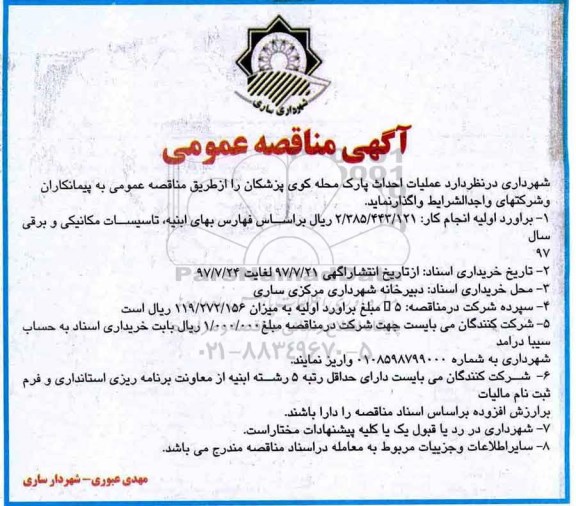 شهرداری ساری
آگهی مناقصه عمومی
شهرداری درنظردارد عملیات احداث پارک محله کوی پزشکان را ازطریق مناقصه عمومی به پیمانکاران
وشرکتهای واجدالشرایط واگذارنماید.
۱- براورد اولیه انجام کار: ۲/۳۸۵/۴۴۳/۱۲۱ ریال براساس فهارس بهای ابنیه، تاسیسات مکانیکی و برقی
سال
۹۷
۲- تاریخ خریداری اسناد: ازتاریخ انتشاراگهی ۹۷/۷/۲۱ لغایت ۹۷/۷/۲۴
۳- محل خریداری اسناد: دبیرخانه شهرداری مرکزی ساری
۴- سپرده شرکت درمناقصه: ۵ مبلغ براورد اولیه به میزان ۱۱۹/۲۷۲/۱۵۶ ریال است
۵- شرکت کنندگان می بایست جهت شرکت درمناقصه مبلغ ۱/۰۰۰/۰۰۰ ریال بابت خریداری اسناد به حساب
سیبا درامد
شهرداری به شماره ۰۱۰۸۵۹۸۷۹۹۰۰۰ واریز نمایند.
۶- شرکت کنندگان می بایست دارای حداقل رتبه ۵ رشته ابنیه از معاونت برنامه ریزی استانداری و فرم
ثبت نام مالیات
برارزش افزوده براساس اسناد مناقصه را دارا باشند.
۷- شهرداری در رد یا قبول یک یا کلیه پیشنهادات مختاراست.
۸- سایراطلاعات وجزییات مربوط به معامله دراسناد مناقصه مندرج می باشد.
مهدی عبوری- شهردار ساری
۰۲۱-۸۸۳۴۹۶۷۰-۵